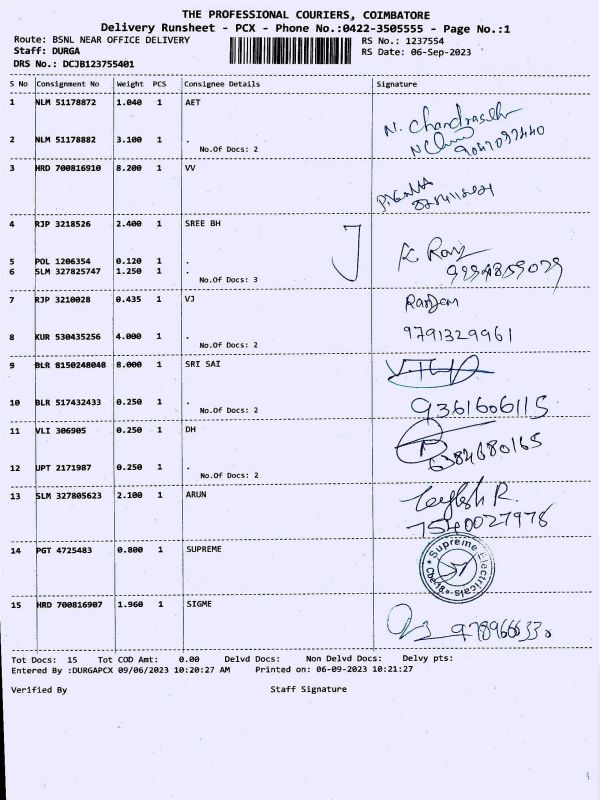 THE PROFESSIONAL COURIERS, COIMBATORE
Delivery Runsheet - PCX - Phone No.:0422-3505555 - Page No.:1
Route: BSNL NEAR OFFICE DELIVERY RS No.: 1237554
Staff: DURGA RS Date: 06-Sep-2023
DRS No.: DCJB123755401
S No Consignment No Weight PCS Consignee Details Signature
1 NLM 51178872 1.040 1 AET
N. Chandrasekar
2 NLM 51178882 3.100 1 .
No.Of Docs: 2
3 HRD 700816910 8.200 1 VV
4 RJP 3218526 2.400 1 SREE BH
K Ravi
5 POL 1206354 0.120 1 .
6 SLM 327825747 1.250 1 .
No.Of Docs: 3
7 RJP 3210028 0.435 1 VJ
8 KUR 530435256 4.000 1 . 9791329961
No.Of Docs: 2
9 BLR 8150248048 8.000 1 SRI SAI
10 BLR 517432433 0.250 1 . 9361606115
No.Of Docs: 2
11 VLI 306905 0.250 1 DH
6384680165
12 UPT 2171987 0.250 1 .
No.Of Docs: 2
13 SLM 327805623 2.100 1 ARUN
7540027978
14 PGT 4725483 0.800 1 SUPREME Supreme Electricals
15 HRD 700816907 1.960 1 SIGME
Tot Docs: 15 Tot COD Amt: 0.00 Delvd Docs: Non Delvd Docs: Delvy pts:
Entered By :DURGAPCX 09/06/2023 10:20:27 AM Printed on: 06-09-2023 10:21:27
Verified By Staff Signature